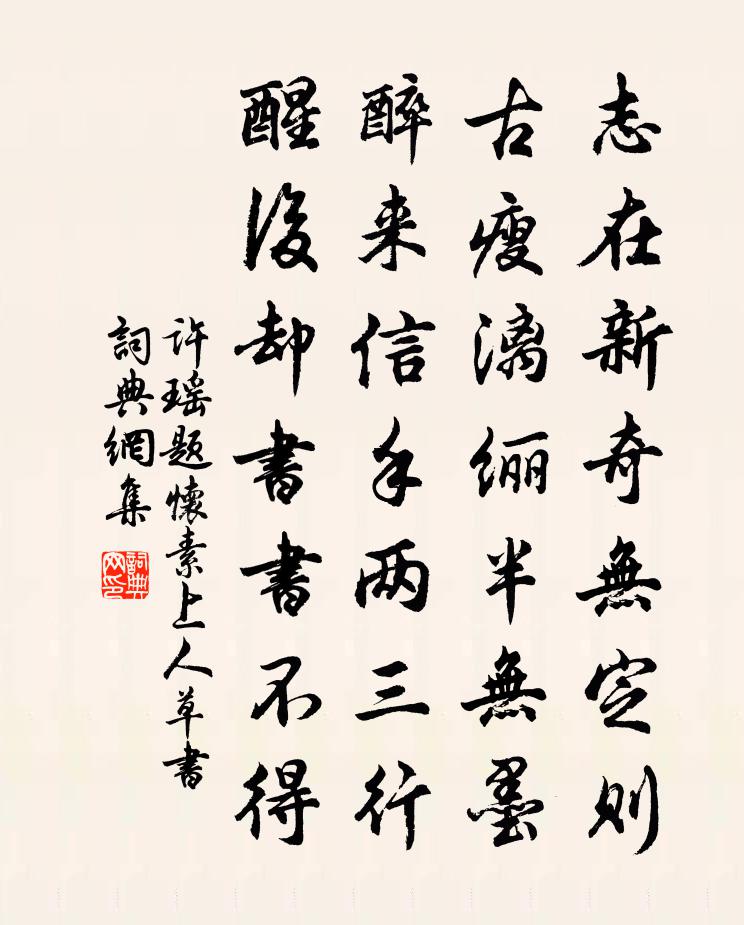 志在新奇無定則
古瘦漓纚半無墨
醉来信手两三行
醒後却書書不得
许瑶題懷素上人草書
詞典網集
詞典網印